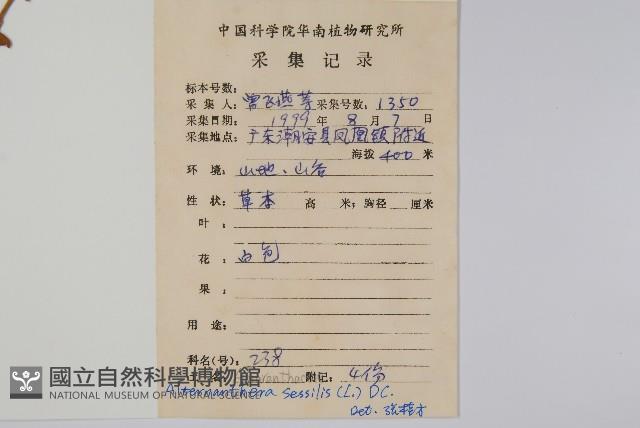 中国科学院华南植物研究所
采集记录
标本号数:
采集人: 曾飞燕等 采集号数: 1350
采集日期: 1999 年 8 月 7 日
采集地点: 广东潮安县凤凰镇附近
海拨 400 米
环境: 山地、山谷
性状: 草本 高 米; 胸径 厘米
叶:
花: 白色
果:
用途:
科名(号): 238 附记: 4份
國立自然科學博物館
NATIONAL MUSEUM OF NATURAL SCIENCE
Alternanthera sessilis (L.) DC.
Det.